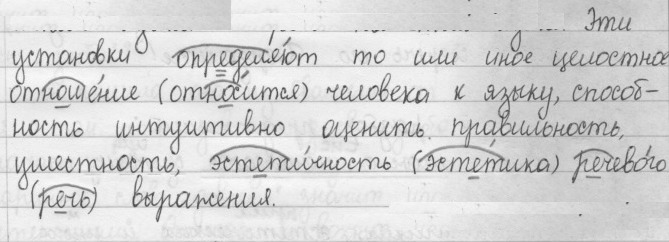 Эти
установки определяют то или иное целостное
отношение (относится) человека к языку, способ-
ность интуитивно оценить правильность,
уместность, эстетичность (эстетика) речевого
(речь) выражения.